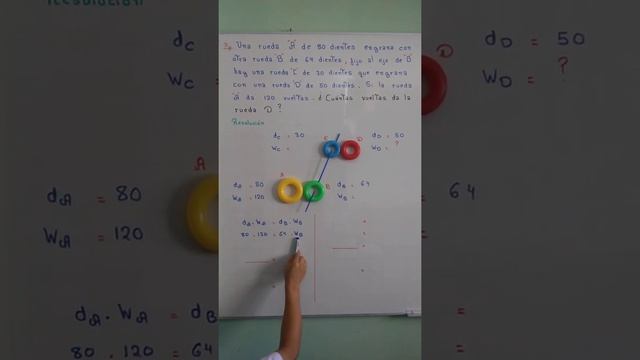 7. Una rueda "A" de 80 dientes engrana con
otra rueda "B" de 64 dientes, fijo al eje de B
hay una rueda "C" de 30 dientes que engrana
con una rueda "D" de 50 dientes. Si la rueda
"A" da 120 vueltas. ¿Cuántas vueltas da la
rueda D?
Resolución
dC = 30
WC =
C
D
dD = 50
WD = ?
A
B
dA = 80
WA = 120
dB = 64
WB =
dA . WA = dB . WB
80 . 120 = 64 . WB